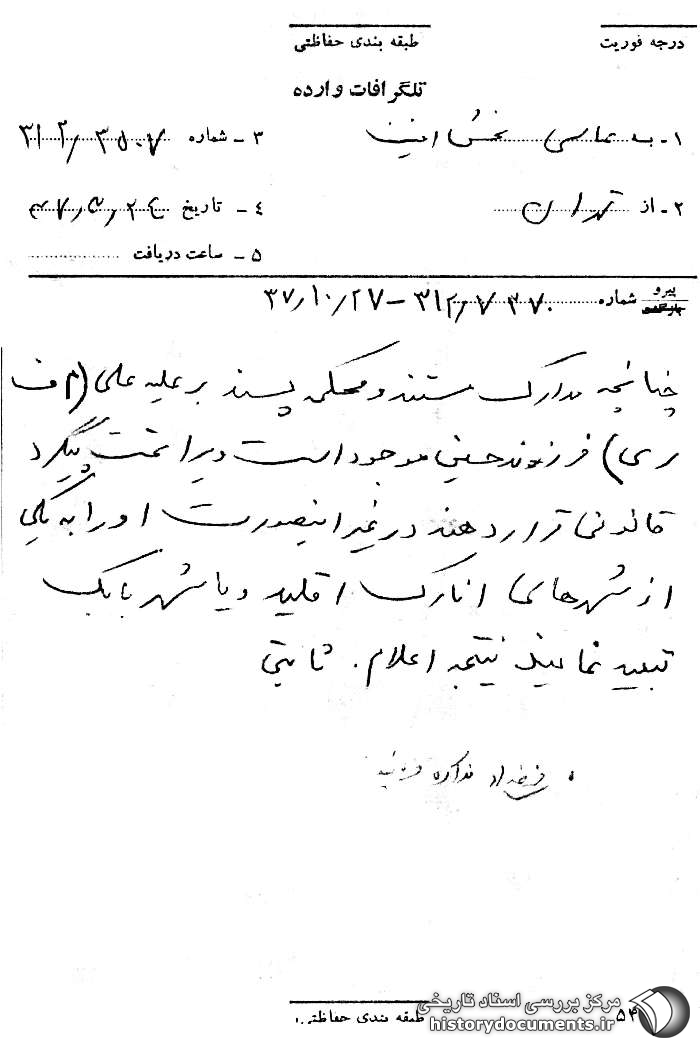 درجه فوریت
طبقه بندی حفاظتی
تلگرافات وارده
۱ـ به
۳ ـ شماره ۳۵۰۷ / ۳۱۲
۲ـ از تهران
٤ ـ تاریخ
۵ ـ ساعت دریافت
پیرو شماره ۷۳۷۰ / ۳۱۲ – ۳۷/۱۰/۲۷
چنانچه مدارک مستند و محکمه پسند بر علیه علی (م ف
ری) فرزند حسین موجود است ویرا تحت پیگرد
قانونی قرار دهند در غیر اینصورت او را به یکی
از شهرهای انارک اقلید و یا شهر بابک
تبعید نمایند نتیجه اعلام. ثابتی
مذاکره
طبقه بندی حفاظتی
۵۴
مرکز بررسی اسناد تاریخی
historydocuments.ir